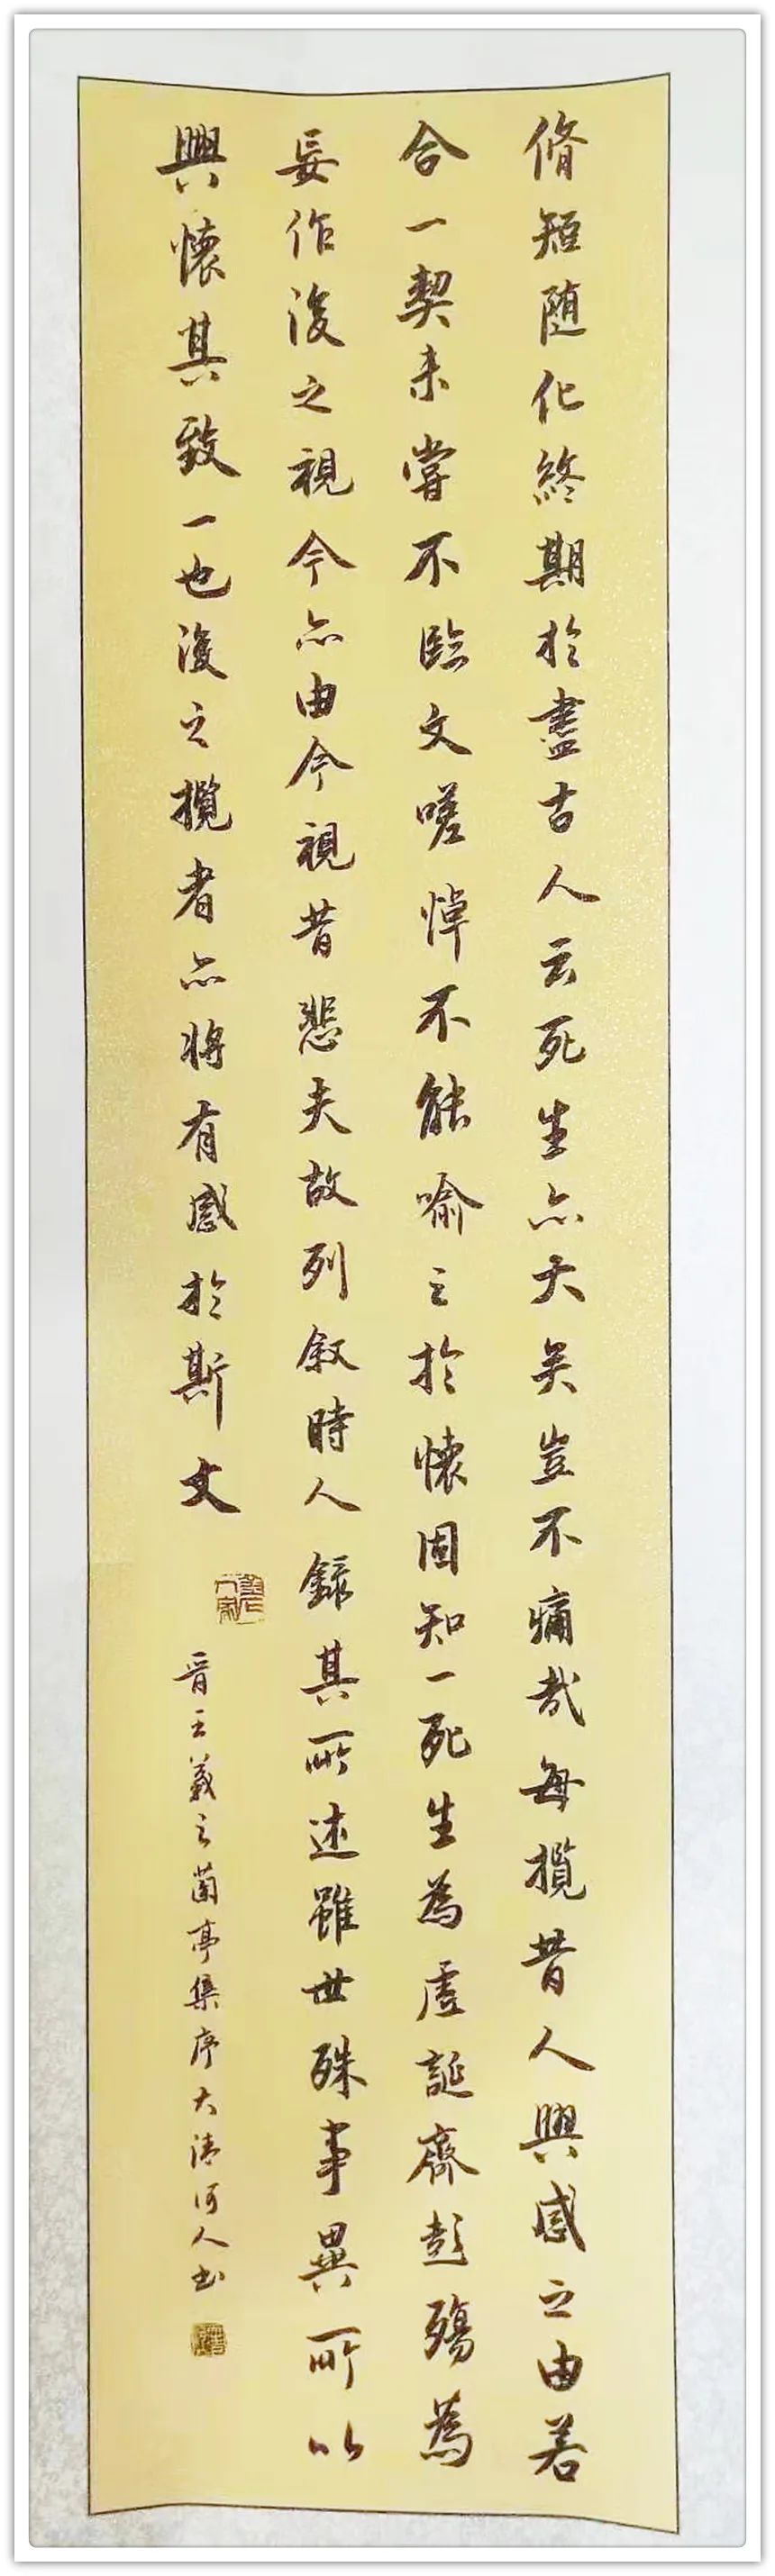 脩短随化終期於盡古人云死生亦大矣豈不痛哉每攬昔人興感之由若
合一契未嘗不臨文嗟悼不能喻之於懷固知一死生為虛誕齊彭殤為
妄作後之視今亦由今視昔悲夫故列敘時人錄其所述雖世殊事異所以
興懷其致一也後之攬者亦將有感於斯文
晉王羲之蘭亭集序大清河人書